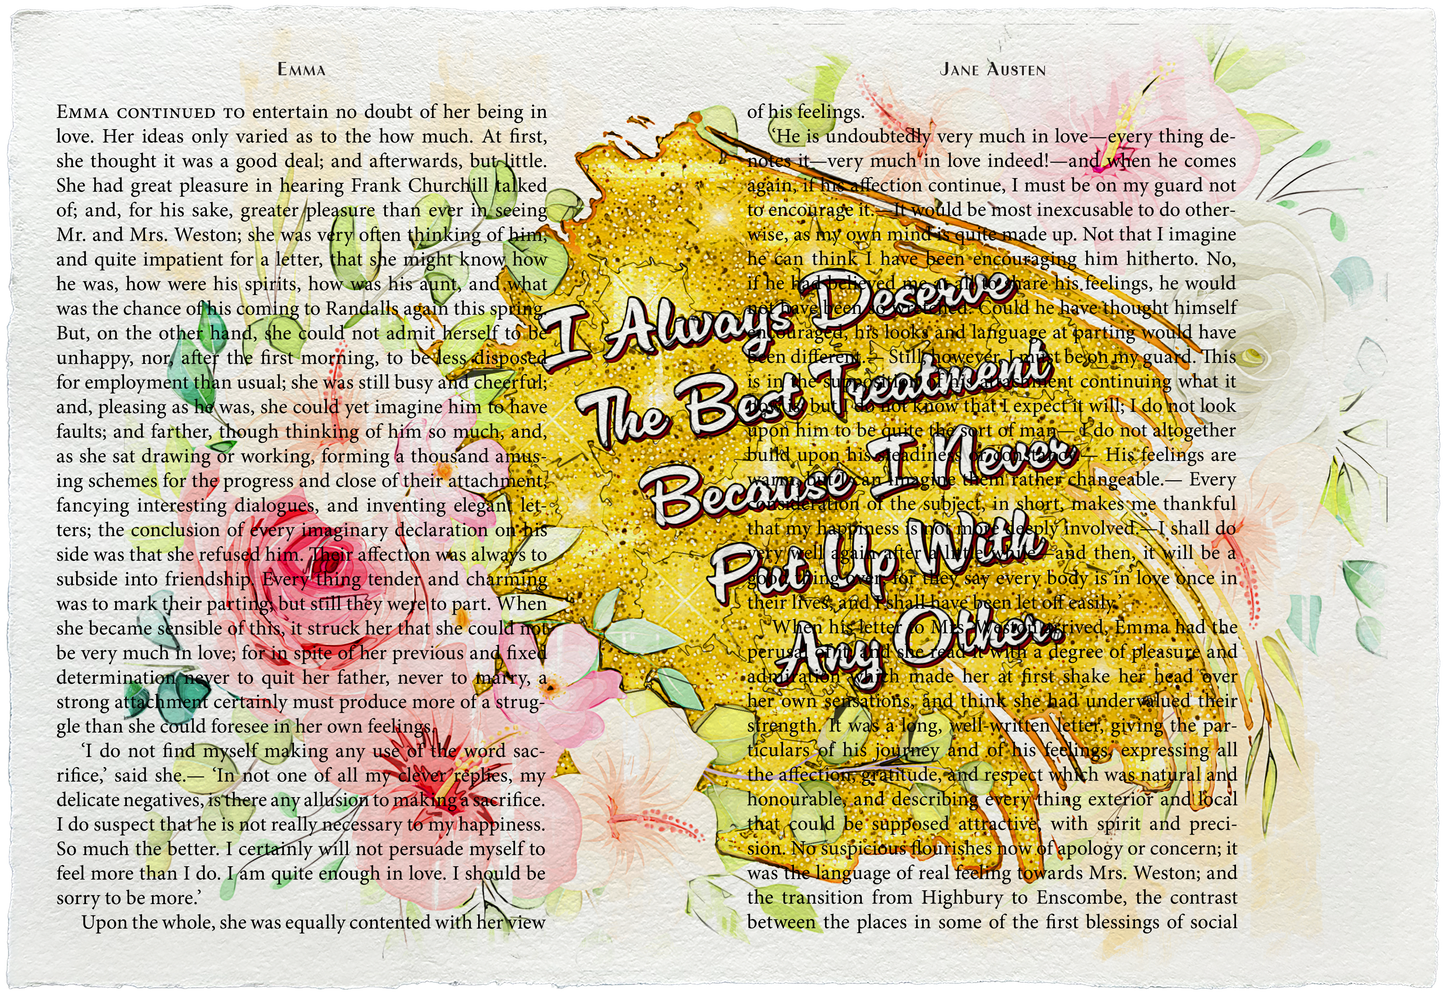 EMMA
EMMA CONTINUED TO entertain no doubt of her being in
love. Her ideas only varied as to the how much. At first,
she thought it was a good deal; and afterwards, but little.
She had great pleasure in hearing Frank Churchill talked
of; and, for his sake, greater pleasure than ever in seeing
Mr. and Mrs. Weston; she was very often thinking of him,
and quite impatient for a letter, that she might know how
he was, how were his spirits, how was his aunt, and what
was the chance of his coming to Randalls again this spring.
But, on the other hand, she could not admit herself to be
unhappy, nor, after the first morning, to be less disposed
for employment than usual; she was still busy and cheerful;
and, pleasing as he was, she could yet imagine him to have
faults; and farther, though thinking of him so much, and,
as she sat drawing or working, forming a thousand amus-
ing schemes for the progress and close of their attachment,
fancying interesting dialogues, and inventing elegant let-
ters; the conclusion of every imaginary declaration on his
side was that she refused him. Their affection was always to
subside into friendship. Every thing tender and charming
was to mark their parting; but still they were to part. When
she became sensible of this, it struck her that she could not
be very much in love; for in spite of her previous and fixed
determination never to quit her father, never to marry, a
strong attachment certainly must produce more of a strug-
gle than she could foresee in her own feelings.
‘I do not find myself making any use of the word sac-
rifice,’ said she.— ‘In not one of all my clever replies, my
delicate negatives, is there any allusion to making a sacrifice.
I do suspect that he is not really necessary to my happiness.
So much the better. I certainly will not persuade myself to
feel more than I do. I am quite enough in love. I should be
sorry to be more.’
Upon the whole, she was equally contented with her view
JANE AUSTEN
of his feelings.
‘He is undoubtedly very much in love—every thing de-
notes it—very much in love indeed!—and when he comes
again, if his affection continue, I must be on my guard not
to encourage it.—It would be most inexcusable to do other-
wise, as my own mind is quite made up. Not that I imagine
he can think I have been encouraging him hitherto. No,
if he had believed me at all to share his feelings, he would
not have been so wretched. Could he have thought himself
encouraged, his looks and language at parting would have
been different.— Still, however, I must be on my guard. This
is in the supposition of his attachment continuing what it
now is; but I do not know that I expect it will; I do not look
upon him to be quite the sort of man— I do not altogether
build upon his steadiness or constancy.— His feelings are
warm, but I can imagine them rather changeable.— Every
consideration of the subject, in short, makes me thankful
that my happiness is not more deeply involved.—I shall do
very well again after a little while—and then, it will be a
good thing over; for they say every body is in love once in
their lives, and I shall have been let off easily.’
When his letter to Mrs. Weston arrived, Emma had the
perusal of it; and she read it with a degree of pleasure and
admiration which made her at first shake her head over
her own sensations, and think she had undervalued their
strength. It was a long, well-written letter, giving the par-
ticulars of his journey and of his feelings, expressing all
the affection, gratitude, and respect which was natural and
honourable, and describing every thing exterior and local
that could be supposed attractive, with spirit and preci-
sion. No suspicious flourishes now of apology or concern; it
was the language of real feeling towards Mrs. Weston; and
the transition from Highbury to Enscombe, the contrast
between the places in some of the first blessings of social
I Always Deserve
The Best Treatment
Because I Never
Put Up With
Any Other.